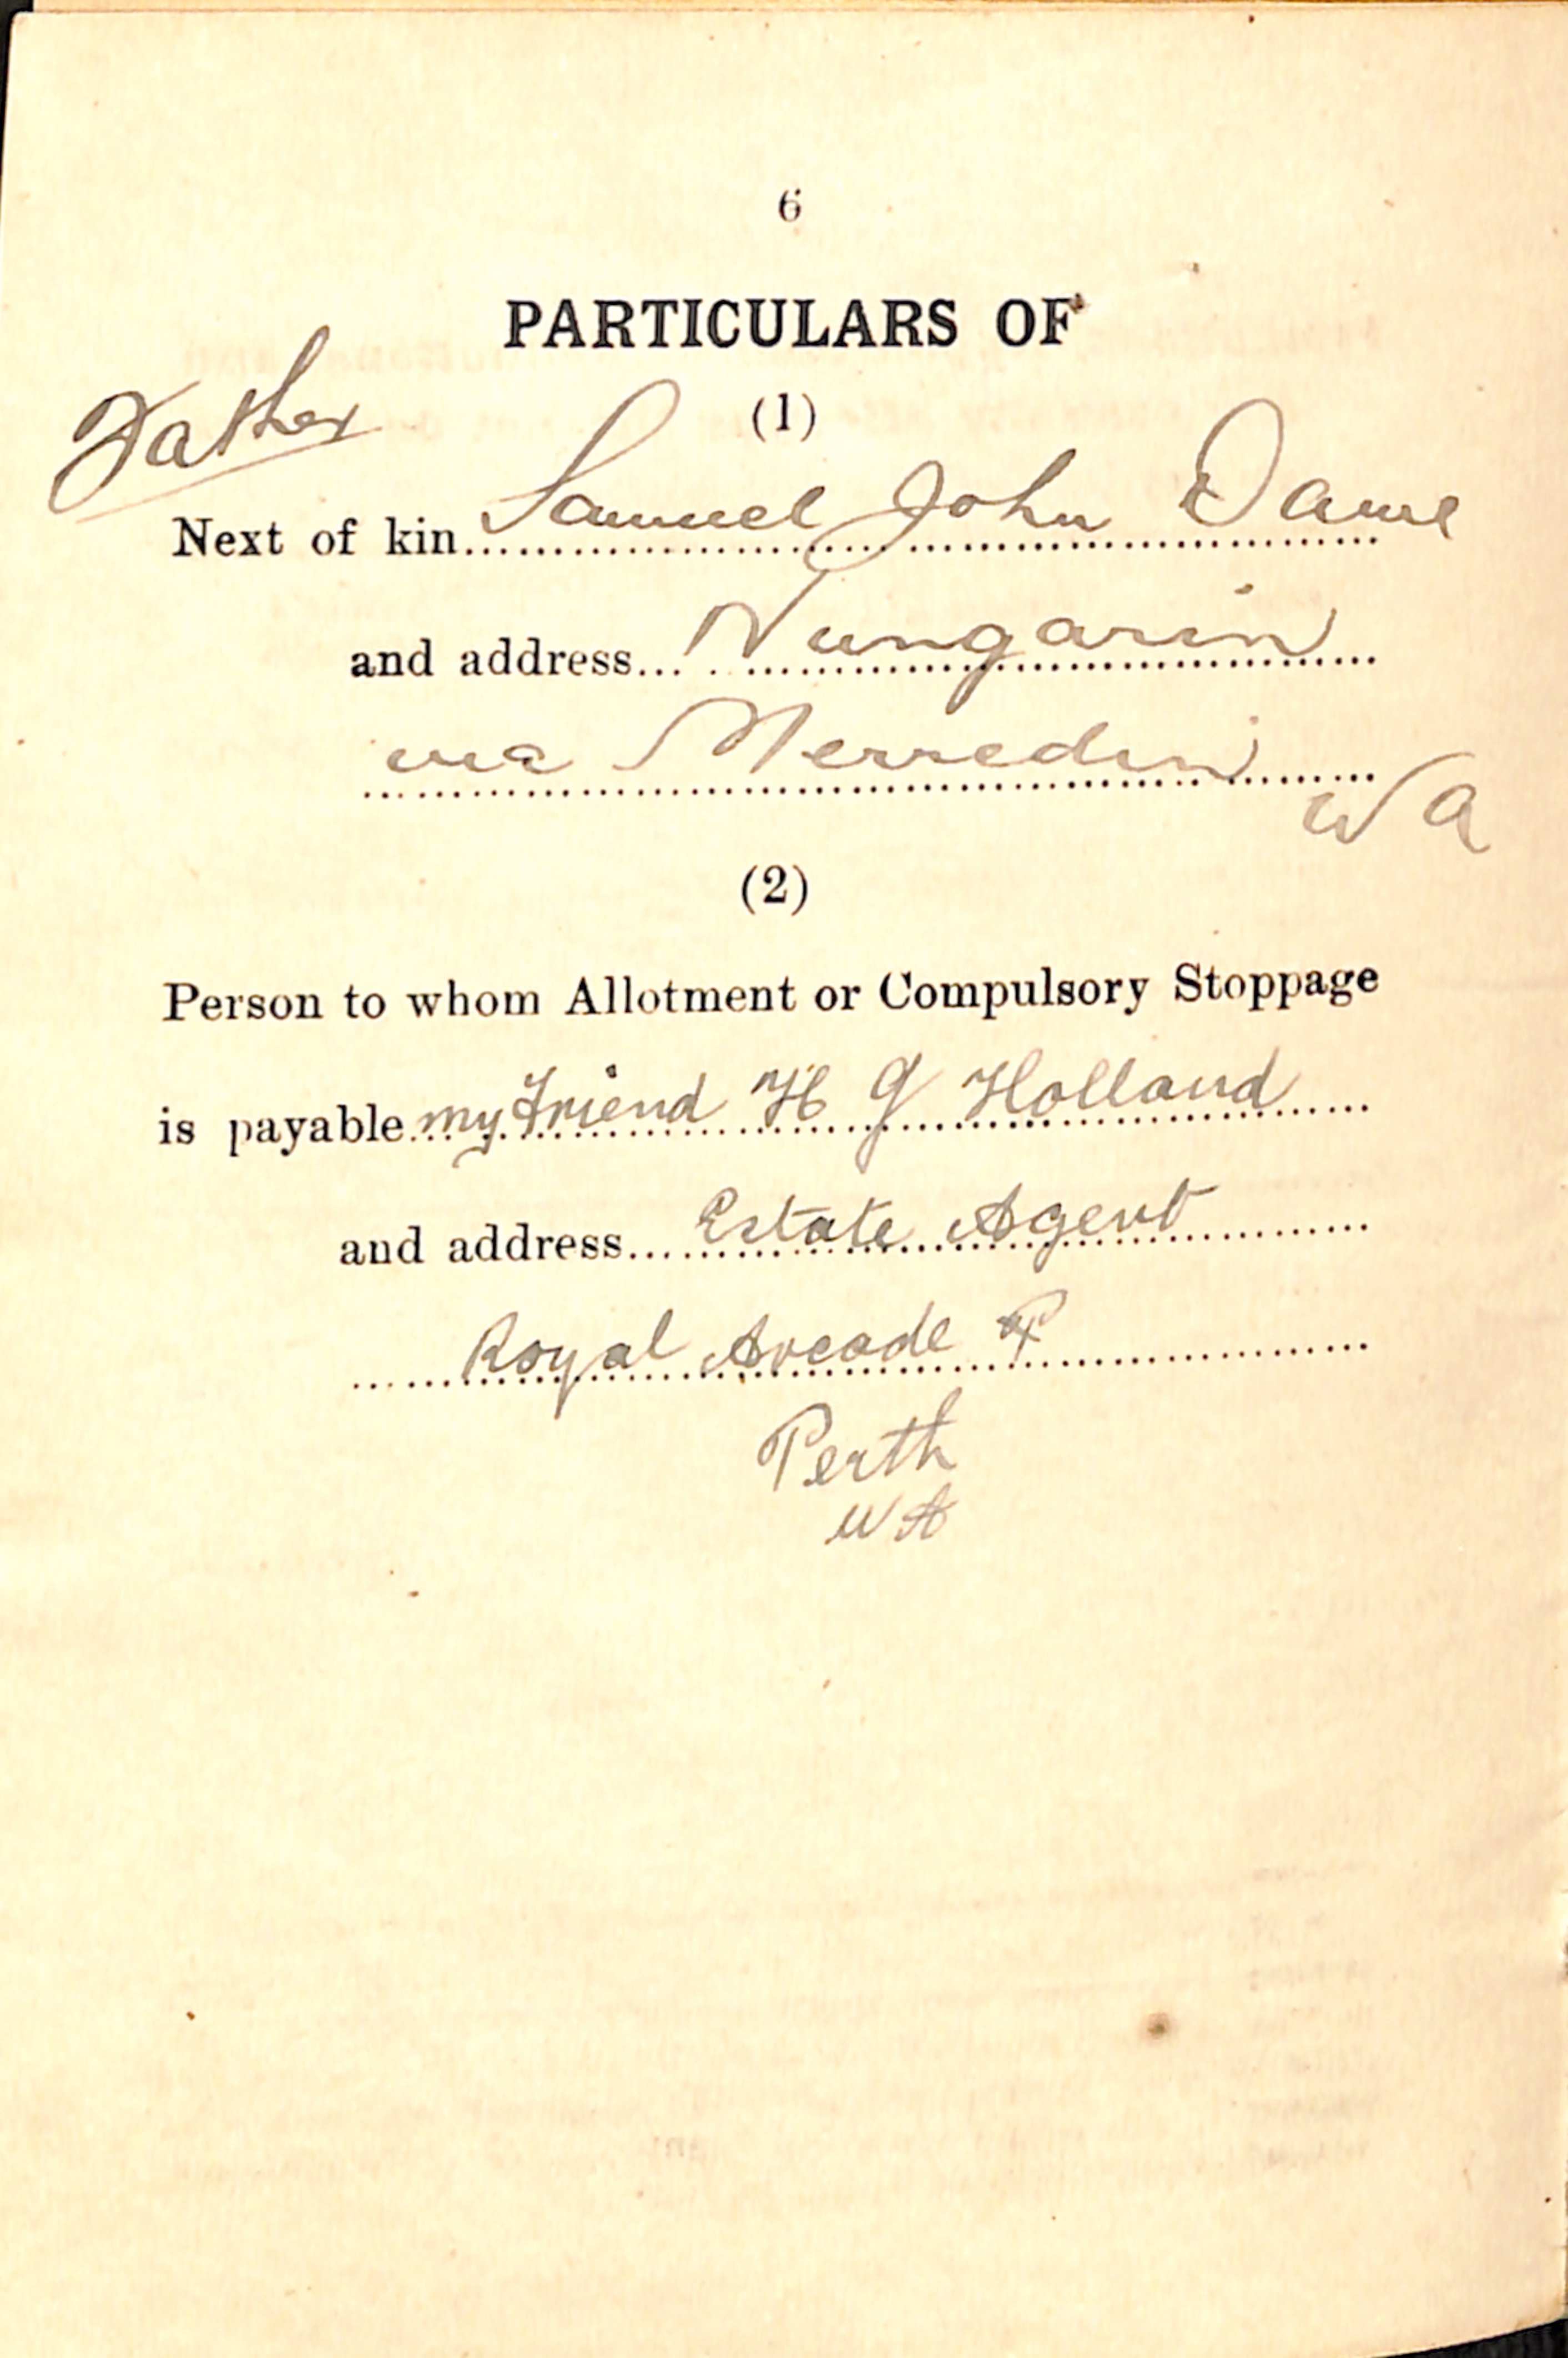 6
PARTICULARS OF
(1)
Father
Next of kin Samuel John Dame
and address Nungarin
via Merredin
WA
(2)
Person to whom Allotment or Compulsory Stoppage
is payable my friend H G Holland
and address Estate Agent
Royal Arcade
Perth
WA